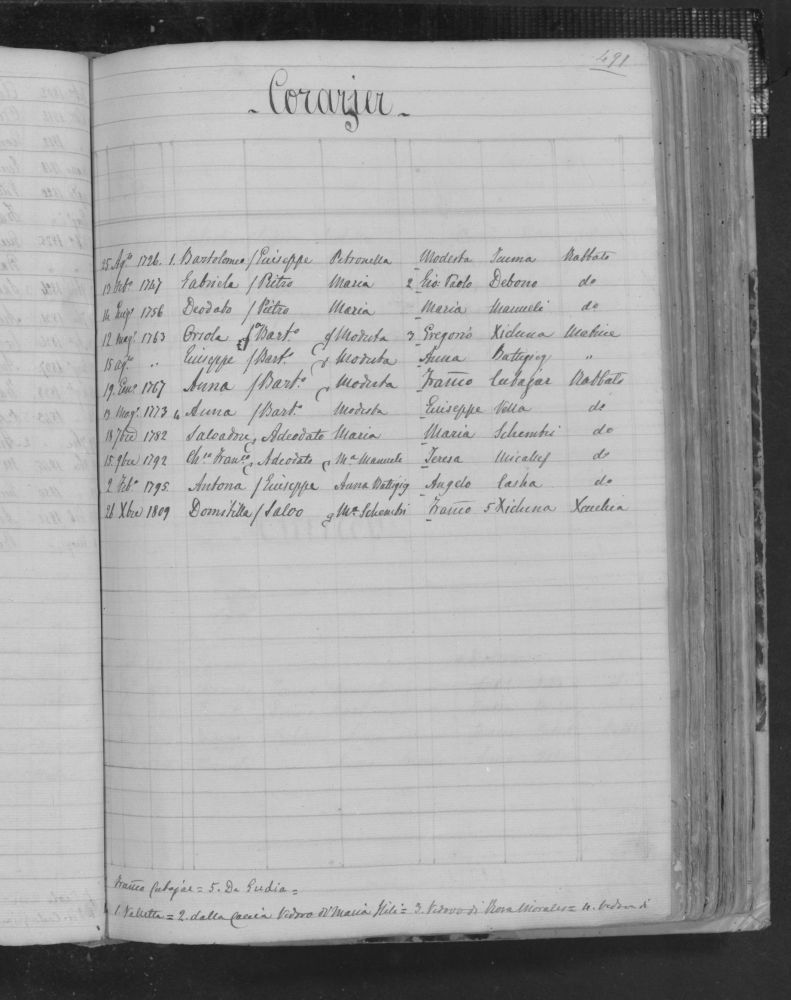 491
- Corarjer -
25 Ag.to 1726. 1. Bartolomeo / Giuseppe Petronella Modesta Rabbato
13 1747 Gabriela / Pietro Maria 2 Gio: Paolo Debono do
14 1756 Deodato / Pietro Maria Maria Mamueli do
12 mag.o 1763 Orsola Bart.o Modesta 3 Gregorio Xiduna Matrice
15 ag.to " Giuseppe / Bart.o Modesta Anna Battigig "
19. Gen.o 1767 Anna / Bart.o Modesta Franco Cubajar Rabbato
13 Mag.o 1773 4 Anna / Bart.o Modesta Giuseppe Vella do
18 7bre 1782 Salvadore Adeodato Maria Maria Schembri do
15. 9bre 1792 Adeodato M.a Mamueli Teresa Micallef do
2 Feb.o 1795 Antona / Giuseppe Anna Batigig Angelo Casha do
26 Xbre 1809 Domitilla / Salvo M.a Schembri Franco 5 Xiduna Xeuchia
Franco Cubajar = 5. Da Gudia =
1. Valletta = 2. dalla Vedovo di Maria = 3. Vedovo di Rosa Morales = 4. Vedova di